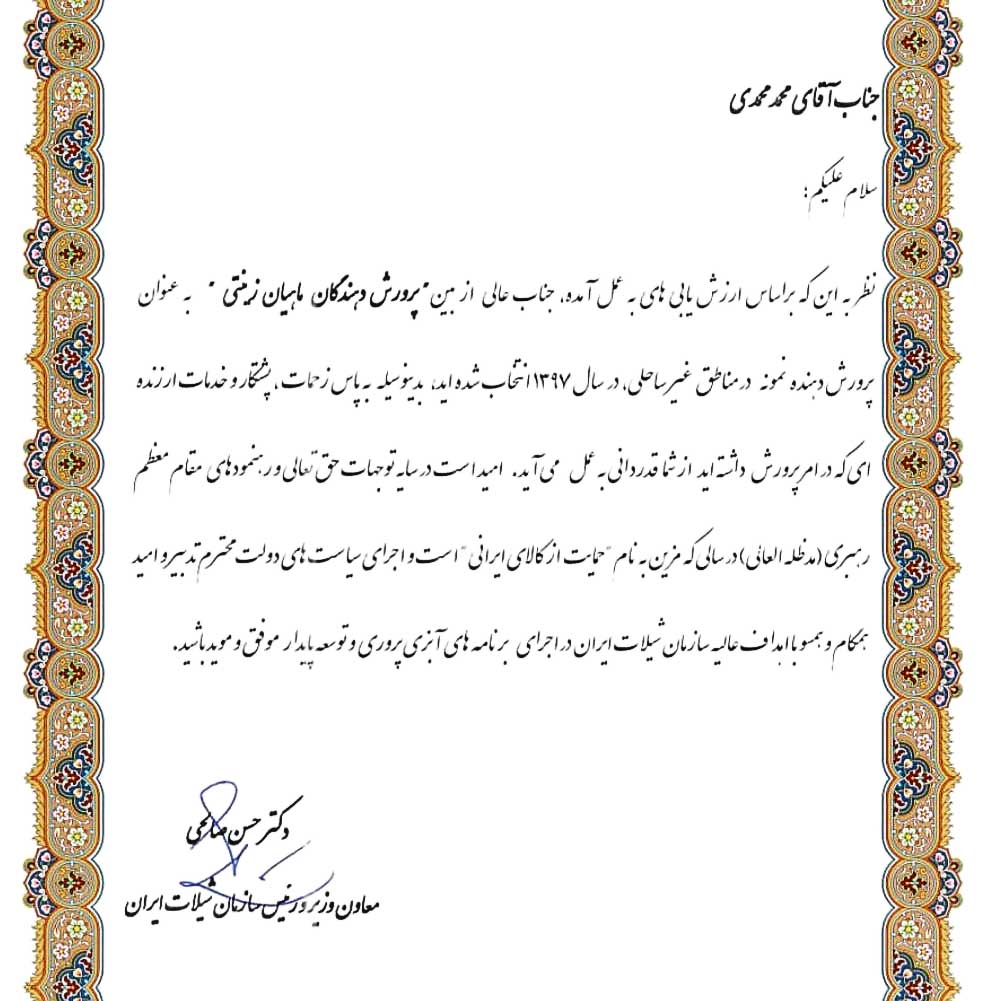 جناب آقای محمد محمدی
سلام علیکم:
نظر به این که براساس ارزش یابی های به عمل آمده، جناب عالی از بین "پرورش دهندگان ماهیان زینتی" به عنوان
پرورش دهنده نمونه در مناطق غیر ساحلی، در سال ۱۳۹۷ انتخاب شده اید، بدینوسیله به پاس زحمات، پشتکار و خدمات ارزنده
ای که در امر پرورش داشته اید از شما قدردانی به عمل می آید. امید است در سایه توجهات حق تعالی و رهنمودهای مقام معظم
رهبری (مدظله العالی) در سالی که مزین به نام "حمایت از کالای ایرانی" است و اجرای سیاست های دولت محترم تدبیر و امید
همگام و همسو با اهداف عالیه سازمان شیلات ایران در اجرای برنامه های آبزی پروری و توسعه پایدار موفق و موید باشید.
دکتر حسن صالحی
معاون وزیر و رئیس سازمان شیلات ایران